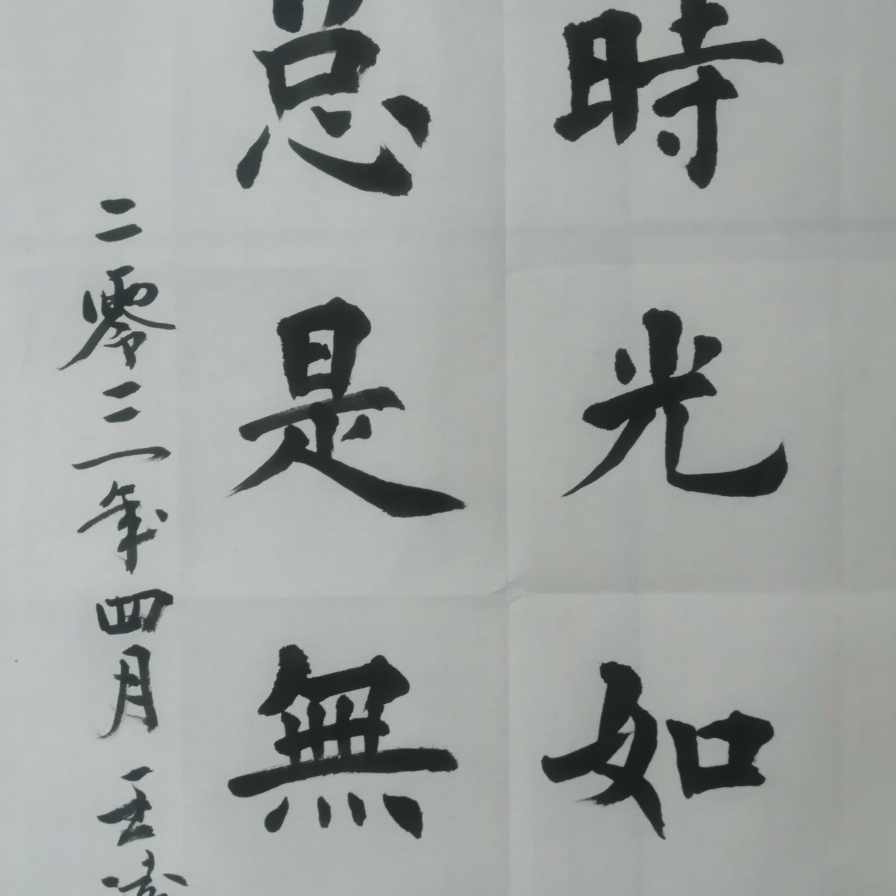 時光如
总是無
二零二一年四月王